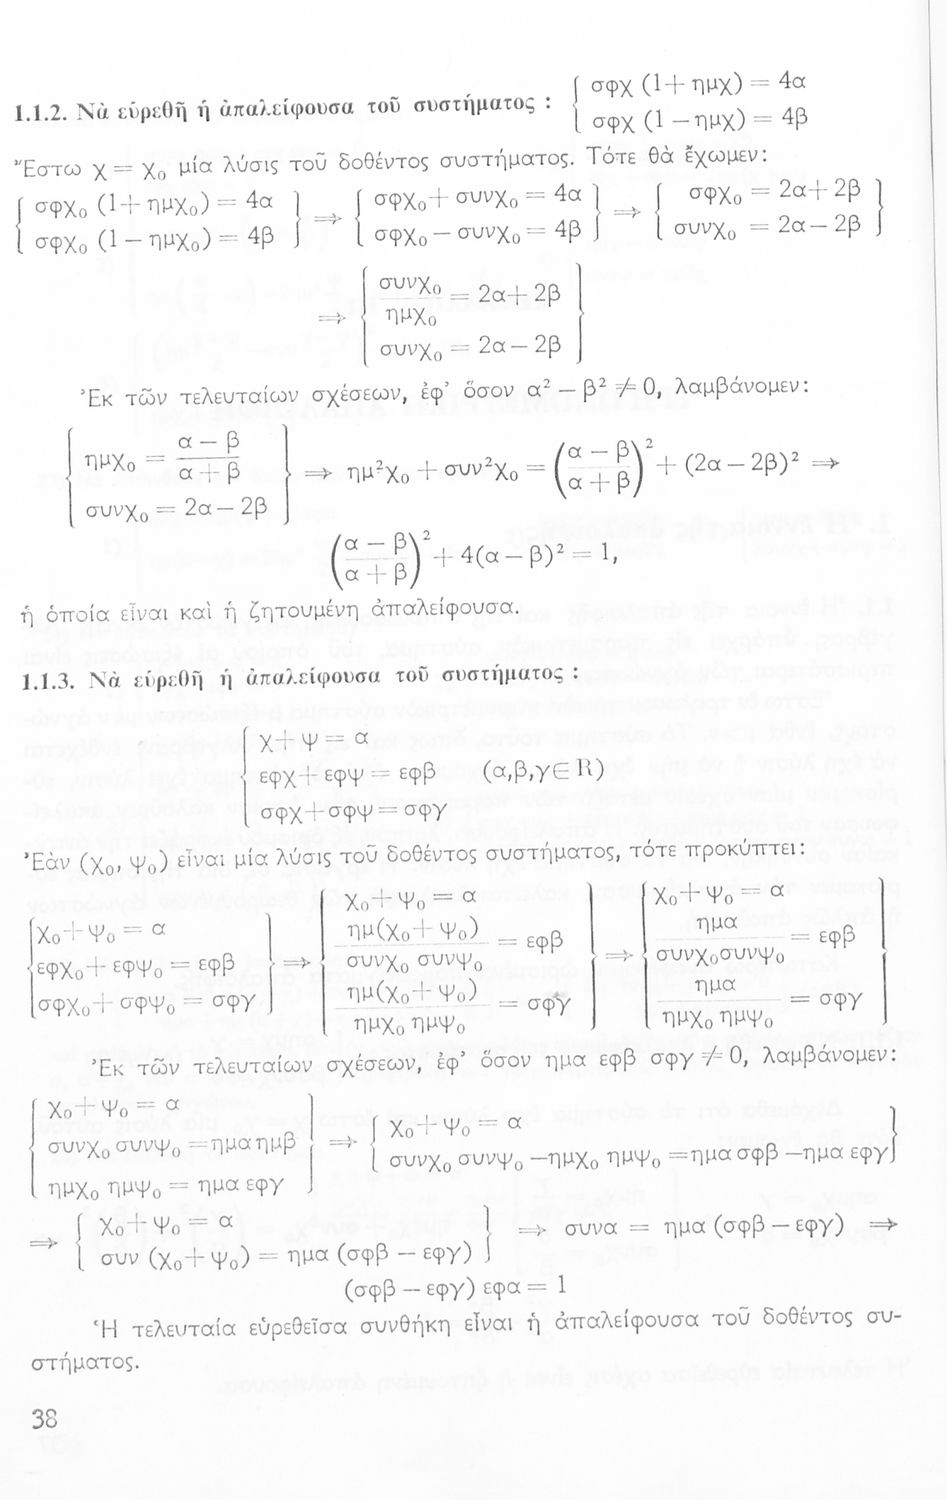 1.1.2. Νὰ εὑρεθῇ ἡ ἀπαλείφουσα τοῦ συστήματος : { σφχ (1+ημχ) = 4α
σφχ (1 −ημχ) = 4β
Ἔστω χ = χ₀ μία λύσις τοῦ δοθέντος συστήματος. Τότε θὰ ἔχωμεν:
{ σφχ₀ (1+ημχ₀) = 4α } ⇒ { σφχ₀+ συνχ₀ = 4α } ⇒ { σφχ₀ = 2α+ 2β }
{ σφχ₀ (1 − ημχ₀) = 4β } { σφχ₀ − συνχ₀ = 4β } { συνχ₀ = 2α− 2β }
⇒ { συνχ₀/ημχ₀ = 2α+ 2β }
{ συνχ₀ = 2α− 2β }
Ἐκ τῶν τελευταίων σχέσεων, ἐφ' ὅσον α² − β² ≠ 0, λαμβάνομεν:
{ ημχ₀ = (α − β)/(α + β) } ⇒ ημ²χ₀ + συν²χ₀ = ((α − β)/(α + β))² + (2α − 2β)² ⇒
{ συνχ₀ = 2α− 2β }
((α − β)/(α + β))² + 4(α − β)² = 1,
ἡ ὁποία εἶναι καὶ ἡ ζητουμένη ἀπαλείφουσα.
1.1.3. Νὰ εὑρεθῇ ἡ ἀπαλείφουσα τοῦ συστήματος :
{ χ+ ψ = α
εφχ + εφψ = εφβ (α,β,γ∈ℝ)
σφχ+σφψ = σφγ
Ἐὰν (χ₀, ψ₀) εἶναι μία λύσις τοῦ δοθέντος συστήματος, τότε προκύπτει:
{ χ₀+ ψ₀ = α } { χ₀+ ψ₀ = α } { χ₀+ ψ₀ = α }
{ εφχ₀+ εφψ₀ = εφβ } ⇒ { ημ(χ₀+ ψ₀)/(συνχ₀ συνψ₀) = εφβ } ⇒ { ημα/(συνχ₀συνψ₀) = εφβ }
{ σφχ₀+ σφψ₀ = σφγ } { ημ(χ₀+ ψ₀)/(ημχ₀ ημψ₀) = σφγ } { ημα/(ημχ₀ ημψ₀) = σφγ }
Ἐκ τῶν τελευταίων σχέσεων, ἐφ' ὅσον ημα εφβ σφγ ≠ 0, λαμβάνομεν:
{ χ₀+ ψ₀ = α } { χ₀+ ψ₀ = α }
{ συνχ₀ συνψ₀ =ημαημβ } ⇒ { συνχ₀ συνψ₀ −ημχ₀ ημψ₀ =ημασφβ −ημα εφγ }
{ ημχ₀ ημψ₀ = ημα εφγ }
⇒ { χ₀+ ψ₀ = α } ⇒ συνα = ημα (σφβ − εφγ) ⇒
{ συν (χ₀+ψ₀) = ημα (σφβ − εφγ) }
(σφβ − εφγ) εφα = 1
Ἡ τελευταία εὑρεθεῖσα συνθήκη εἶναι ἡ ἀπαλείφουσα τοῦ δοθέντος συ-
στήματος.
38